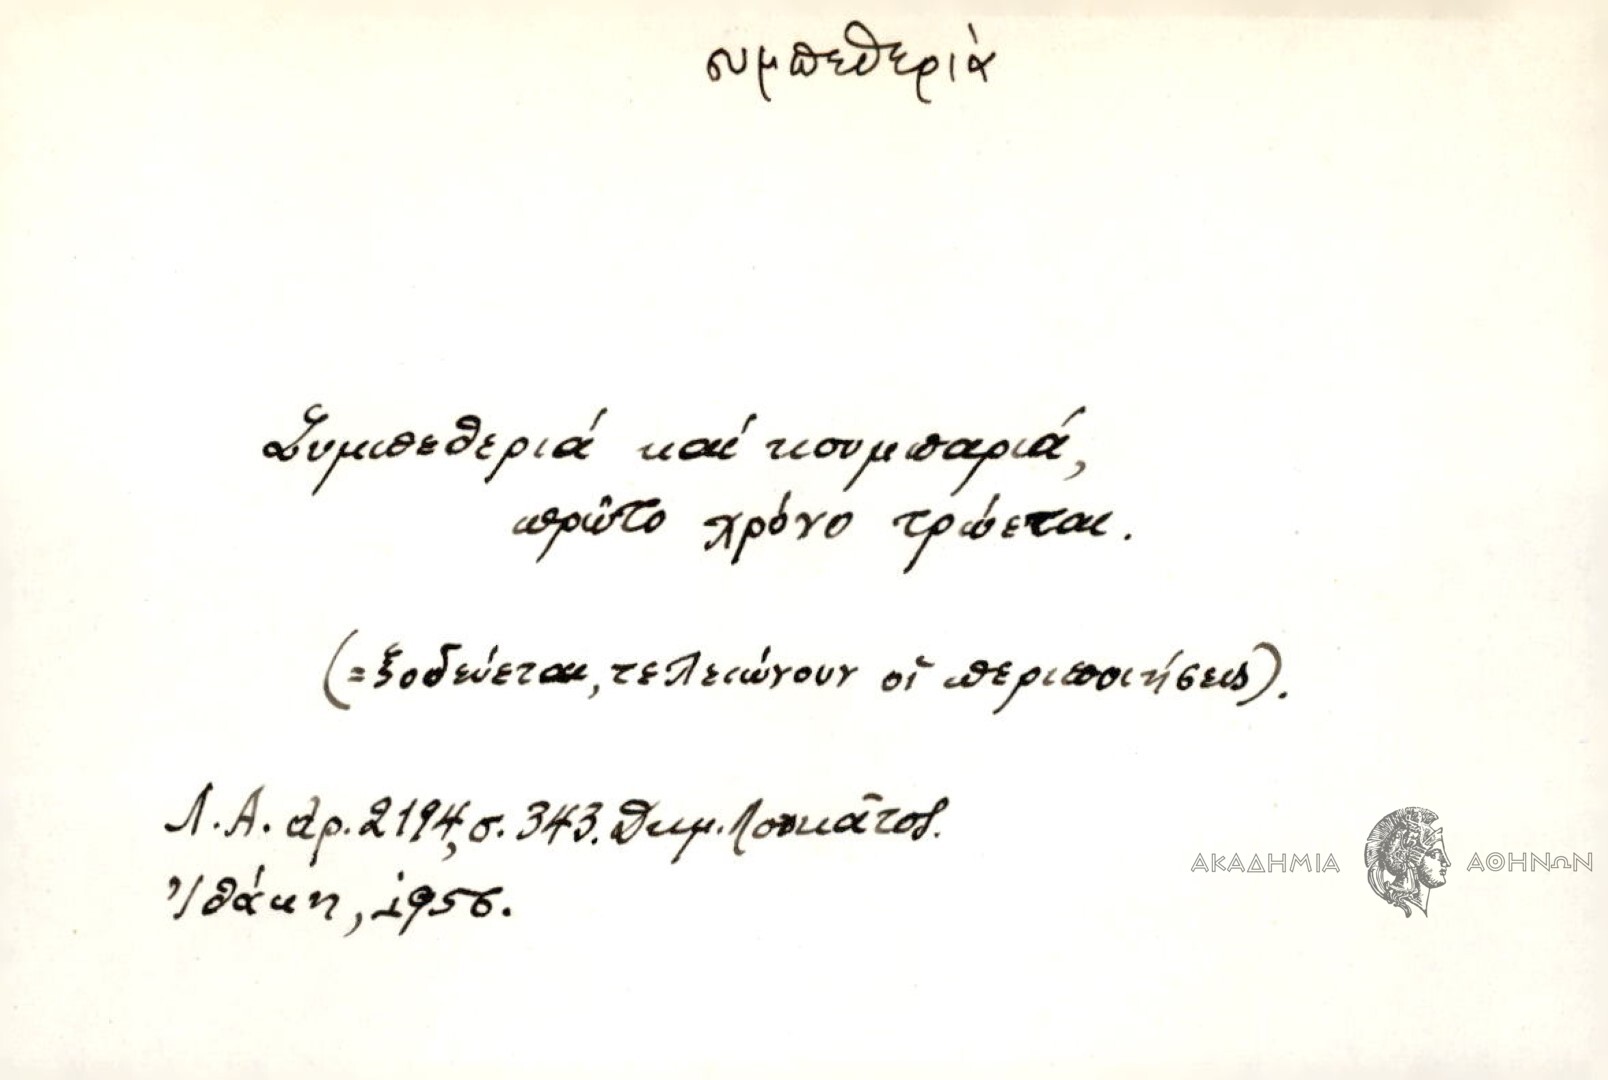 συμπεθεριὰ
Συμπεθεριά καί κουμπαριά,
πρῶτο χρόνο τρώεται.
(=ξοδεύεται, τελειώνουν οἱ περιποιήσεις).
Λ.Α. ἀρ. 2194, σ. 343. Δημ. Λουκᾶτος.
Ἰθάκη, 1956.
ΑΚΑΔΗΜΙΑ ΑΘΗΝΩΝ